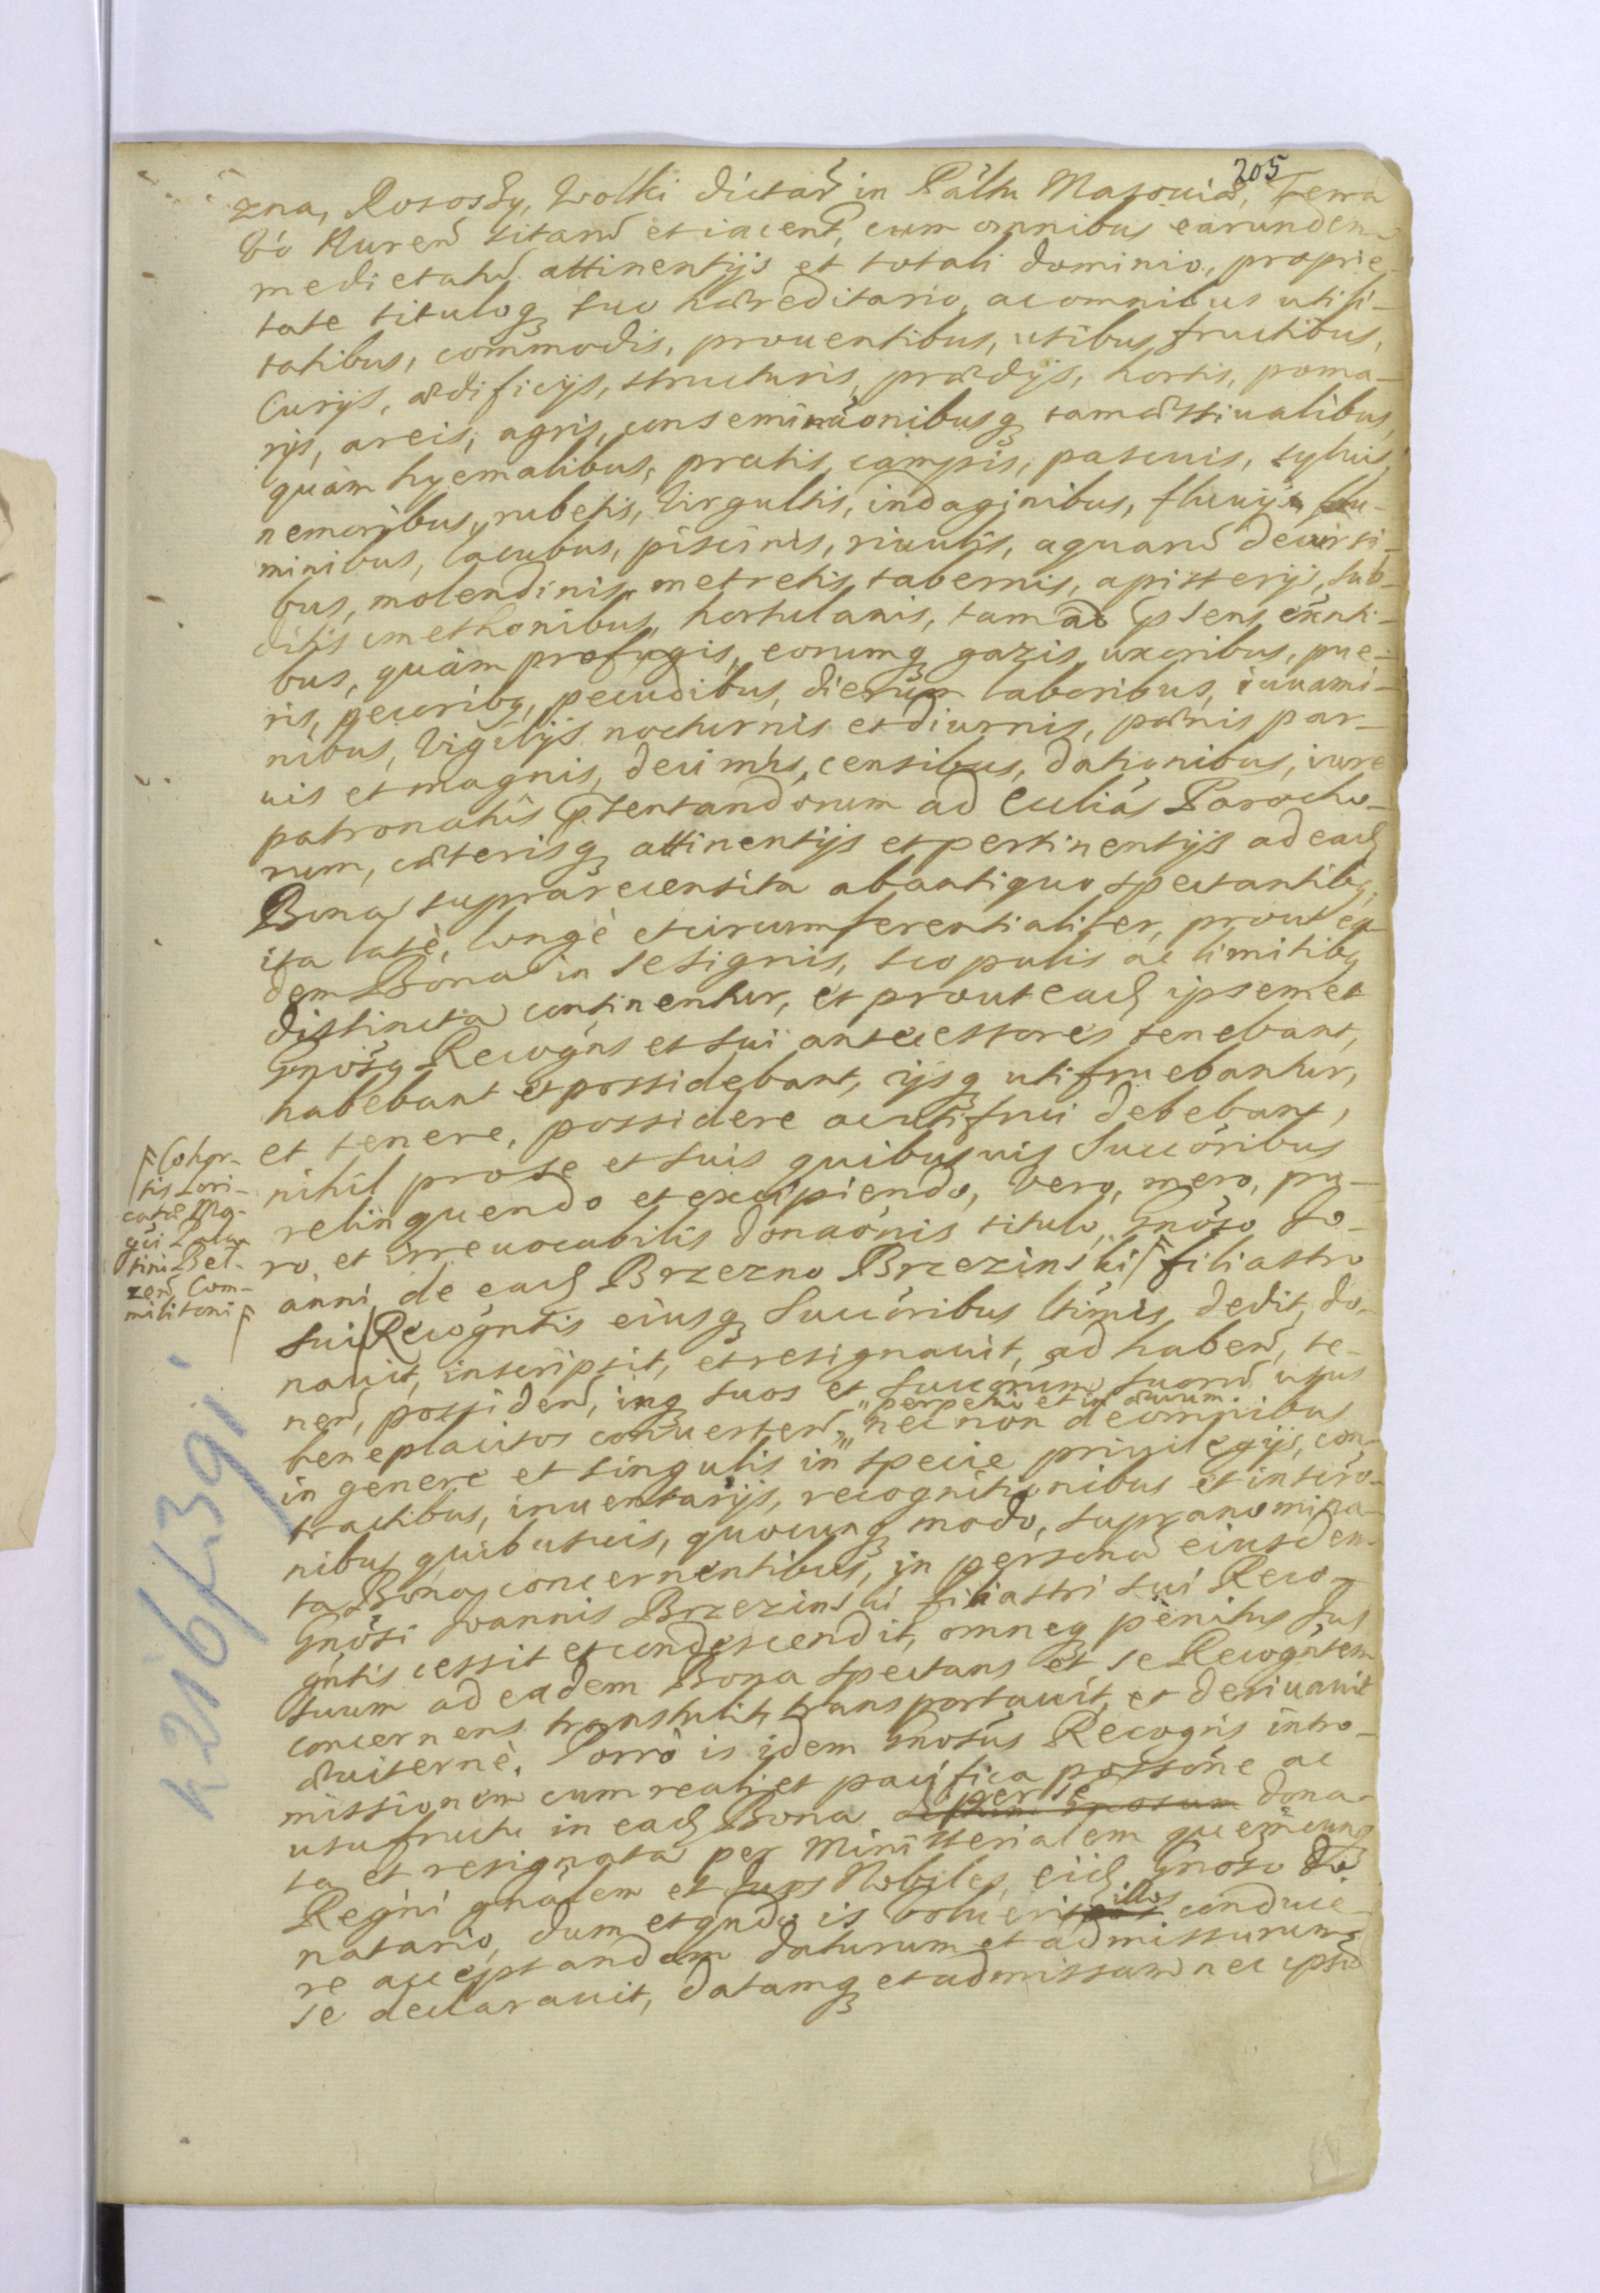 205
zna, Rososzy, Wolki dictar̃ in Pãltu Masouiæ, Terra
v̑o Nuren̄ sitar̃ et iacent̃, cum omnibus earundem
medietatũ attinentijs et totali dominio, proprie-
tate tituloq₃ suo hæreditario, ac omnibus utili-
tatibus, commodis, prouentibus, usibus, fructibus,
Curijs, ædificijs, structuris, prædijs, hortis, poma-
rijs, areis, agris, conseminãonibusq₃ tam æstiualibus,
quàm hyemalibus, pratis, campis, pascuis, syluis,
nemoribus, rubetis, virgultis, indaginibus, fluuijs, flu-
minibus, lacubus, piscinis, riuulis, aquarũ decursi-
bus, molendinis, metretis, tabernis, apisterijs, sub-
ditis cmethonibus, hortulanis, tam ad p̃sens exñti-
bus, quàm profugis, eorumq₃ gazis, uxoribus, pue-
ris, pecoribq₃, pecudibus, dierum laboribus, iuuami-
nibus, vigilijs nocturnis et diurnis, pœnis par-
uis et magnis, decimis, censibus, dationibus, iure
patronatûs p̃sentandorum ad Ecclias Parocho-
rum, cæterisq₃ attinentijs et pertinentijs ad ead̃
Bona suprarecensita ab antiquo spectantibq₃,
ita latè, longè et circumferentialiter, prout ea-
dem Bona in se signis, scopulis ac limitibq₃
distincta continentur, et prout ead̃ ipsemet
Gnõsq₃ Recogñs et sui antecessores tenebant,
habebant et possidebant, ijsq₃ utifruebantur,
et tenere, possidere ac utifrui debebant,
nihil pro se et suis quibusuis Succõribus
relinquendo et excipiendo, vero, mero, pu-
ro, et irreuocabilis donaõnis titulo, Gnõso Jo-
anni de ead̃ Brzezno Brzezinski filiastro
Cohor-
tis Lori-
catæ Ma-
gci Pala-
tini Bel-
zen̄ Com-
militoni
sui Recogñtis eiusq₃ Succõribus ltimis dedit, do-
nauit, inscripsit, et resignauit, ad haben̄, te-
nen̄, possiden̄, inq₃ suos et Succõrum suorũ usus
beneplacitos conuerten̄ perpetuò et in æuum. nec non de omnibus
in genere et singulis in specie priuilegijs, con-
tractibus, inuentarijs, recognitionibus et inscrõ-
nibus quibusuis, quocunq₃ modo, supranomina-
ta Bona concernentibus, in personã eiusdem
Gnõsi Ioannis Brzezinski filiastri sui Reco-
gñtis cessit et condescendit, omneq₃ pènitus Jus
suum ad eadem Bona spectans et se Recogñtem
concernens transtulit, transportauit, et deriuauit
æuiternè. Porrò is idem Gnosus Recogñs intro-
missionem cum reali et pacifica possõne ac
usufructu in ead̃ Bona per se dona-
ta et resignata per Ministerialem quemcunq₃
Regni gñalem et duos Nobiles, eid̃ Gnoso Do
natario, dum et qñdo is voluerit illos conduce-
re acceptandam daturum et admissurum
se declarauit, datamq₃ et admissam nec ipsũ
k216/391